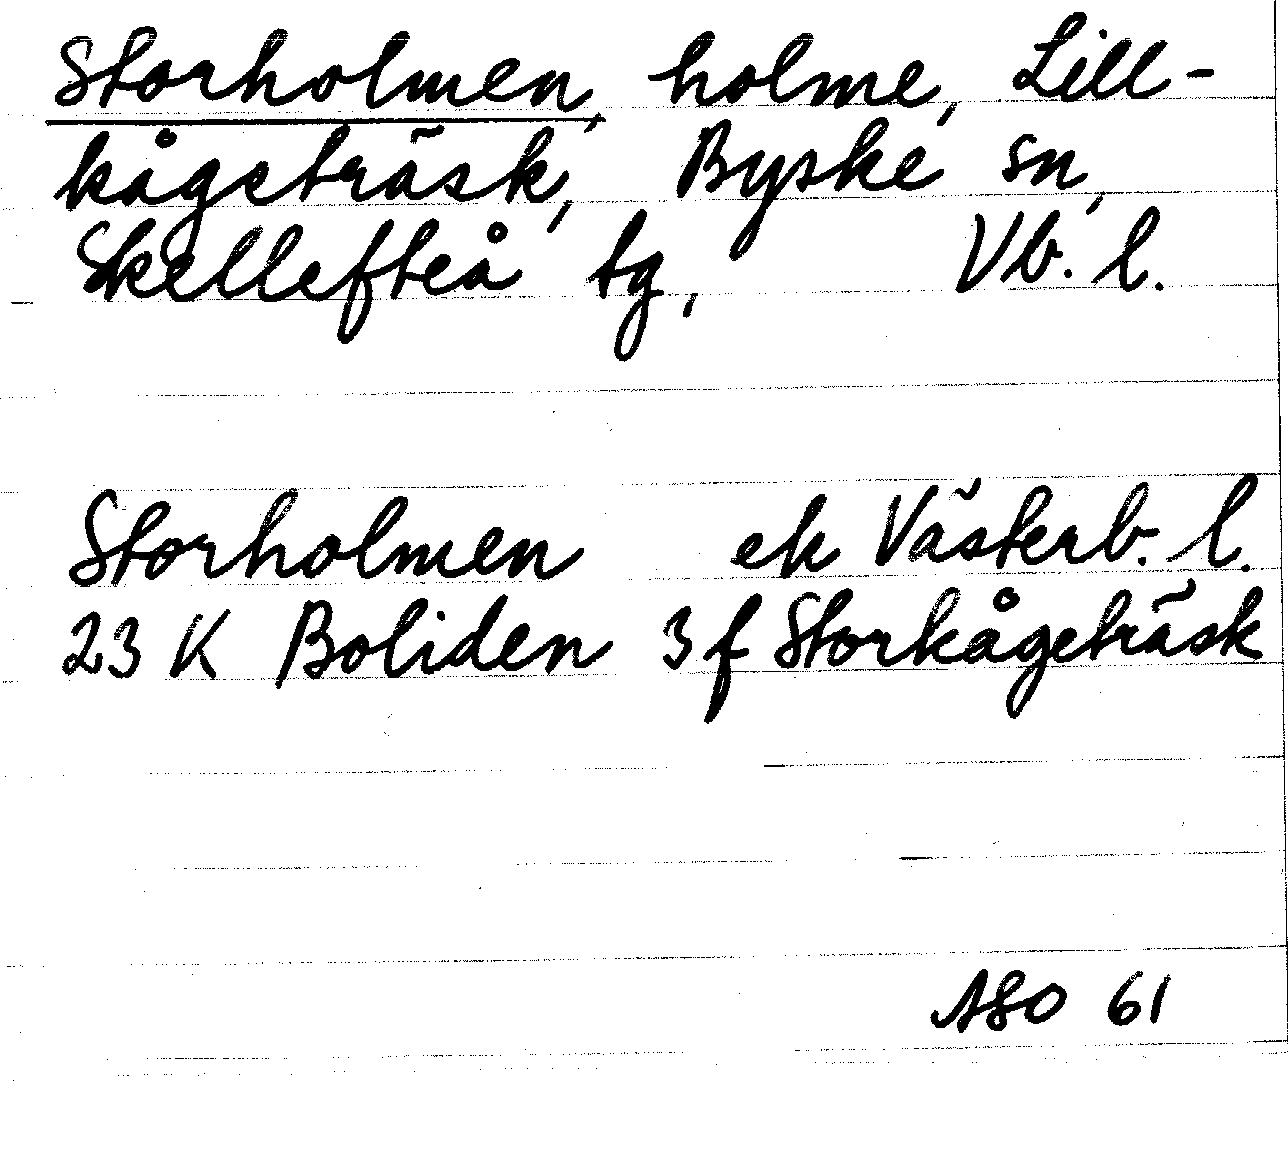 Storholmen, holme, Lill-
kågeträsk, Byske sn,
Skellefteå tg, Vb. l.
Storholmen ek Västerb. l.
23 K Boliden 3 f Storkågeträsk
61